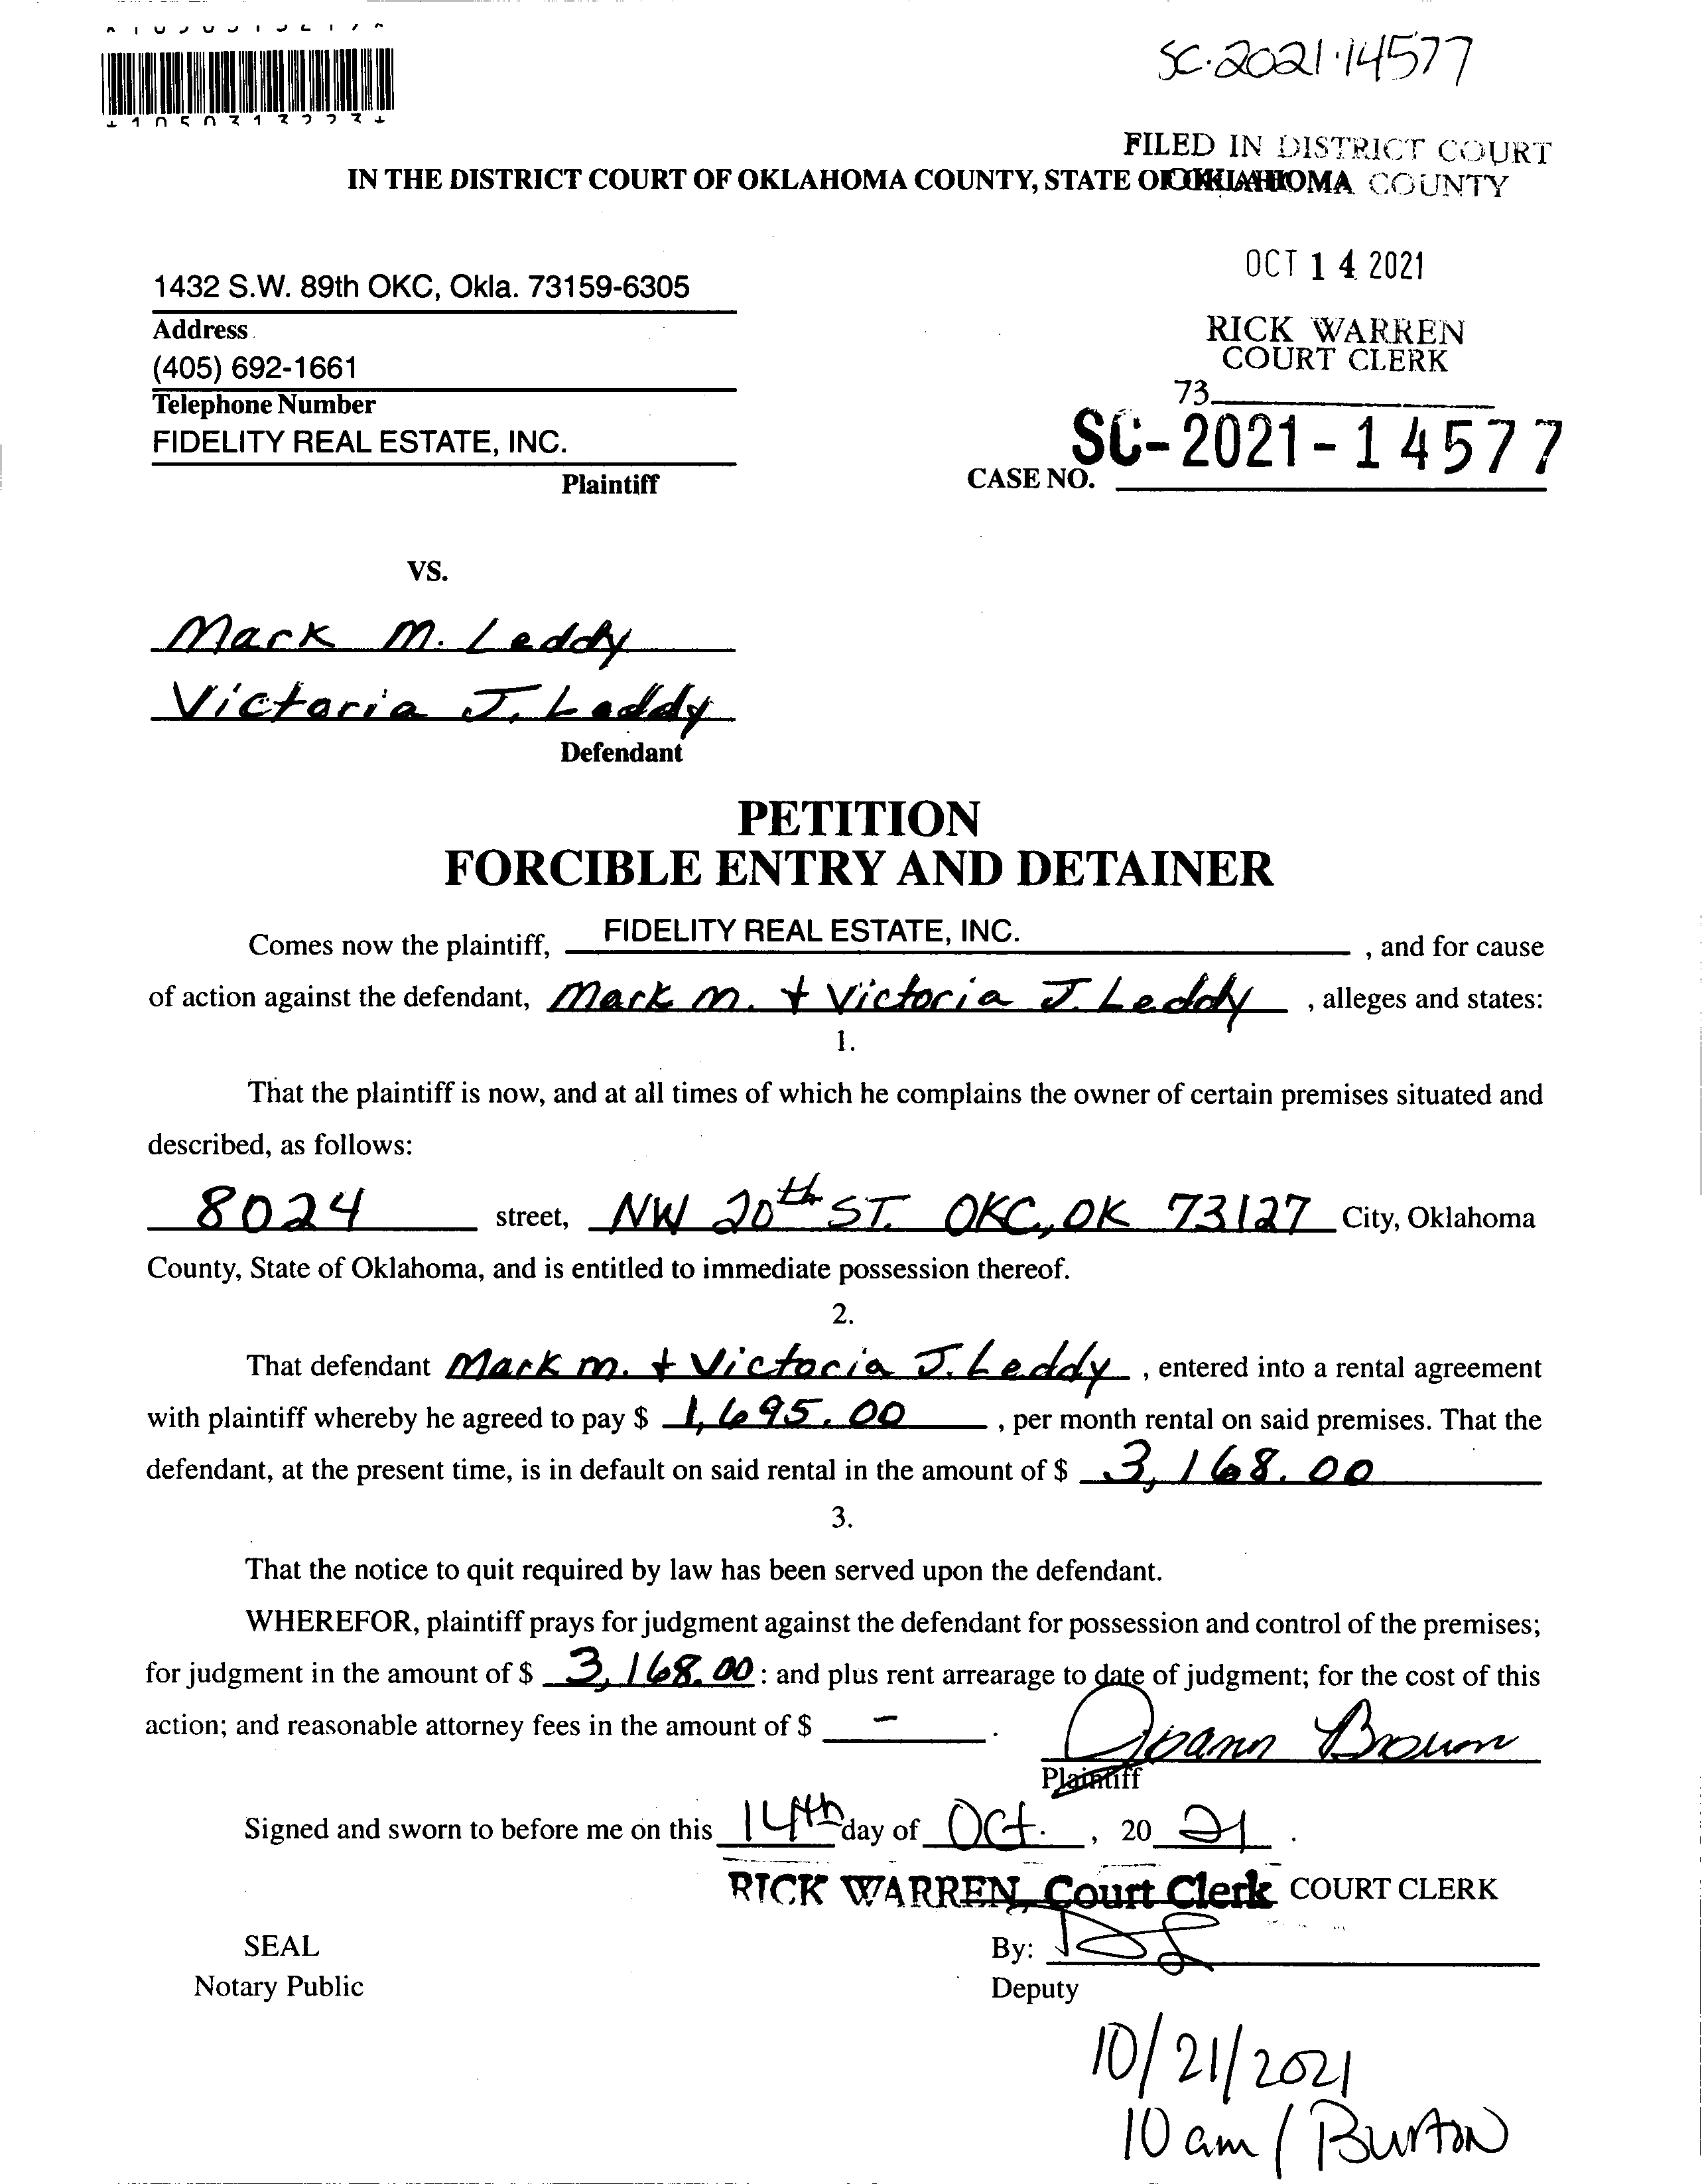 SC-2021-14577
FILED IN DISTRICT COURT
IN THE DISTRICT COURT OF OKLAHOMA COUNTY, STATE OF OKLAHOMA
OKLAHOMA COUNTY
OCT 14 2021
1432 S.W. 89th OKC, Okla. 73159-6305
Address
RICK WARREN
COURT CLERK
(405) 692-1661
Telephone Number
73
FIDELITY REAL ESTATE, INC.
Plaintiff
CASE NO. SC-2021-14577
VS.
Mark M. Leddy
Victoria J. Leddy
Defendant
PETITION
FORCIBLE ENTRY AND DETAINER
Comes now the plaintiff, FIDELITY REAL ESTATE, INC. , and for cause
of action against the defendant, Mark M. + Victoria J. Leddy , alleges and states:
1.
That the plaintiff is now, and at all times of which he complains the owner of certain premises situated and
described, as follows:
8024 street, NW 20th ST. OKC, OK 73127 City, Oklahoma
County, State of Oklahoma, and is entitled to immediate possession thereof.
2.
That defendant Mark M. + Victoria J. Leddy , entered into a rental agreement
with plaintiff whereby he agreed to pay $ 1,695.00 , per month rental on said premises. That the
defendant, at the present time, is in default on said rental in the amount of $ 3,168.00
3.
That the notice to quit required by law has been served upon the defendant.
WHEREFOR, plaintiff prays for judgment against the defendant for possession and control of the premises;
for judgment in the amount of $ 3,168.00 : and plus rent arrearage to date of judgment; for the cost of this
action; and reasonable attorney fees in the amount of $ - .
Joann Brown
Plaintiff
Signed and sworn to before me on this 14th day of Oct. , 20 21 .
RICK WARREN, Court Clerk COURT CLERK
SEAL
By:
Notary Public
Deputy
10/21/2021
10 am / Burton